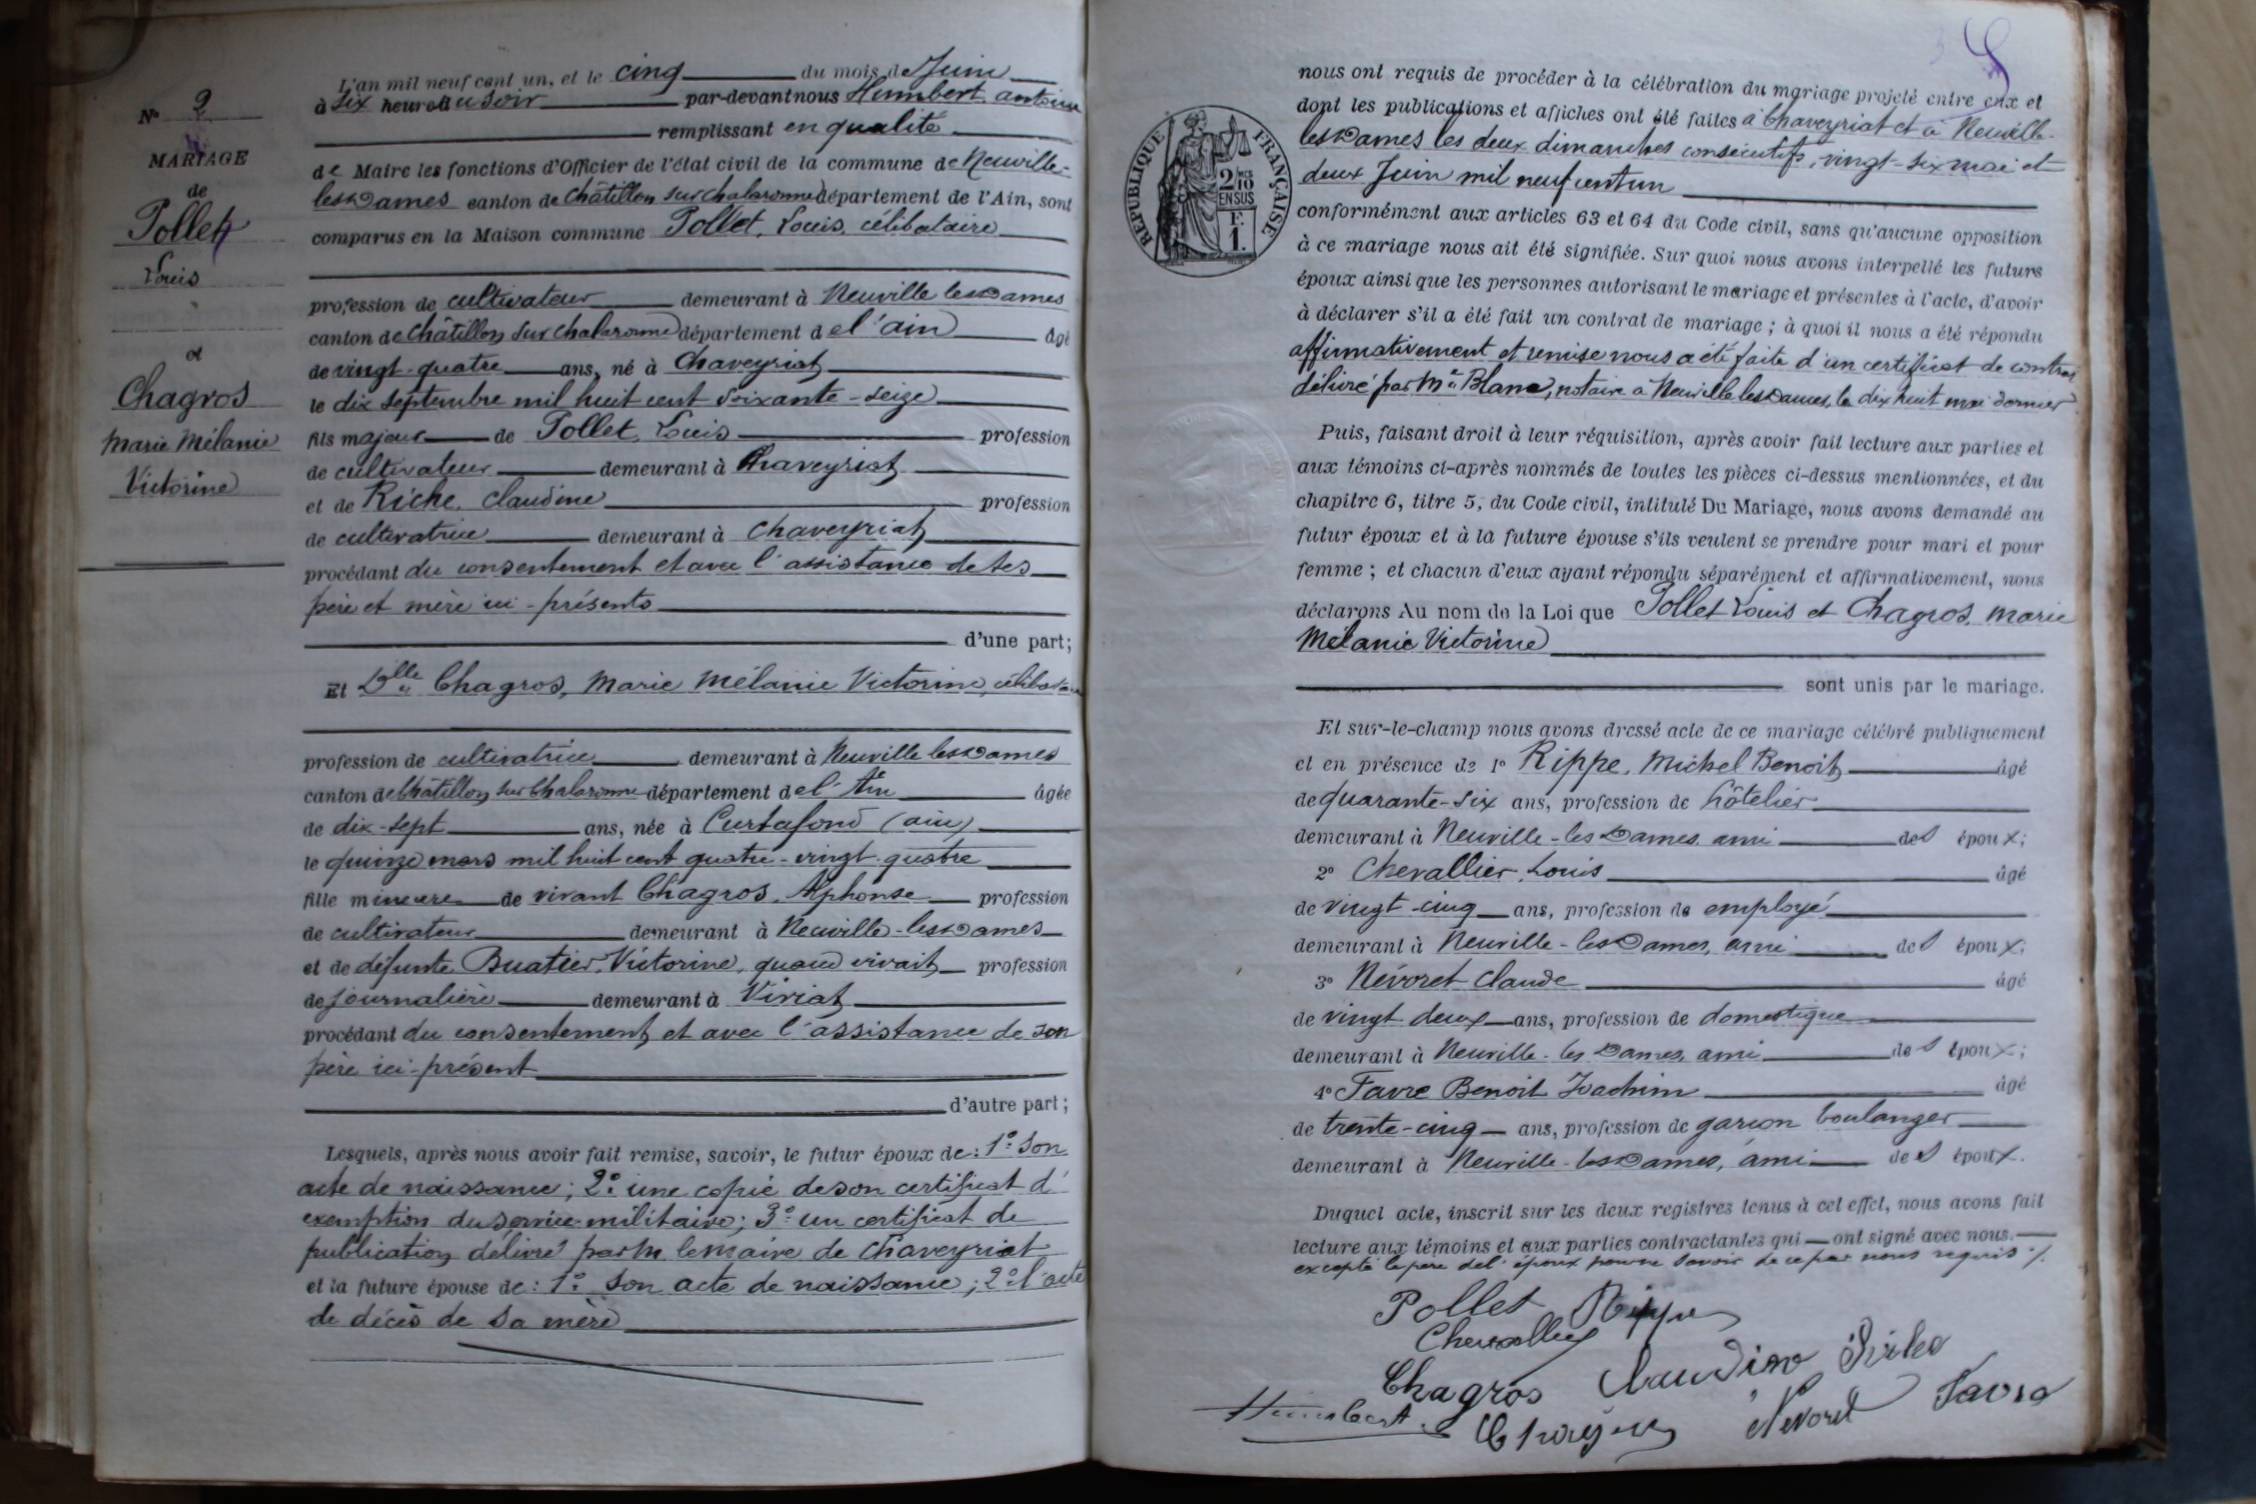 N° 9
MARIAGE
de
Pollet
Louis
et
Chagros
Marie Mélanie
Victorine
L'an mil neuf cent un, et le cinq du mois de Juin
à six heures du soir par-devant nous Humbert, antoine
remplissant en qualité
de Maire les fonctions d'Officier de l'état civil de la commune de Neuville-
les-Dames canton de Châtillon sur Chalaronne département de l'Ain, sont
comparus en la Maison commune Pollet, Louis, célibataire
profession de cultivateur demeurant à Neuville les Dames
canton de Châtillon sur Chalaronne département de l'ain âgé
de vingt-quatre ans, né à Chaveyriat
le dix septembre mil huit cent soixante-seize
fils majeur de Pollet, Louis profession
de cultivateur demeurant à Chaveyriat
et de Riche, Claudine profession
de cultivatrice demeurant à Chaveyriat
procédant du consentement et avec l'assistance de ses
père et mère ici-présents
d'une part;
Et Dlle Chagros, Marie Mélanie Victorine, célibataire
profession de cultivatrice demeurant à Neuville les Dames
canton de Châtillon sur Chalaronne département de l'Ain âgée
de dix-sept ans, née à Curtafond (ain)
le quinze mars mil huit cent quatre-vingt-quatre
fille mineure de vivant Chagros, Alphonse profession
de cultivateur demeurant à Neuville-les-Dames
et de défunte Buatier, Victorine, quand vivait profession
de journalière demeurant à Viriat
procédant du consentement et avec l'assistance de son
père ici-présent
d'autre part;
Lesquels, après nous avoir fait remise, savoir, le futur époux de: 1° Son
acte de naissance; 2° une copie de son certificat d'
exemption du service militaire; 3° un certificat de
publication délivré par M. le maire de Chaveyriat
et la future épouse de: 1° Son acte de naissance; 2° l'acte
de décès de sa mère
RÉPUBLIQUE FRANÇAISE
2/10 EN SUS
F.
1.
nous ont requis de procéder à la célébration du mariage projeté entre eux et
dont les publications et affiches ont été faites à Chaveyriat et à Neuville-
les Dames les deux dimanches consécutifs, vingt-six mai et
deux Juin mil neuf cent un
conformément aux articles 63 et 64 du Code civil, sans qu'aucune opposition
à ce mariage nous ait été signifiée. Sur quoi nous avons interpellé les futurs
époux ainsi que les personnes autorisant le mariage et présentes à l'acte, d'avoir
à déclarer s'il a été fait un contrat de mariage; à quoi il nous a été répondu
affirmativement et remise nous a été faite d'un certificat de contrat
délivré par Me Blanc, notaire à Neuville les Dames, le dix huit mai dernier
Puis, faisant droit à leur réquisition, après avoir fait lecture aux parties et
aux témoins ci-après nommés de toutes les pièces ci-dessus mentionnées, et du
chapitre 6, titre 5, du Code civil, intitulé Du Mariage, nous avons demandé au
futur époux et à la future épouse s'ils veulent se prendre pour mari et pour
femme; et chacun d'eux ayant répondu séparément et affirmativement, nous
déclarons Au nom de la Loi que Pollet Louis et Chagros, Marie
Mélanie Victorine
sont unis par le mariage.
Et sur-le-champ nous avons dressé acte de ce mariage célébré publiquement
et en présence de 1° Rippe, Michel Benoit âgé
de quarante-six ans, profession de hôtelier
demeurant à Neuville-les Dames, ami des époux;
2° Chevallier, Louis âgé
de vingt-cinq ans, profession de employé
demeurant à Neuville-les Dames, ami des époux;
3° Névoret Claude âgé
de vingt deux ans, profession de domestique
demeurant à Neuville-les Dames, ami des époux;
4° Favre Benoit Joachim âgé
de trente-cinq ans, profession de garçon boulanger
demeurant à Neuville-les Dames, ami des époux.
Duquel acte, inscrit sur les deux registres tenus à cet effet, nous avons fait
lecture aux témoins et aux parties contractantes qui ont signé avec nous.
excepté le père de l'époux pour ne savoir de ce par nous requis ./.
Pollet Rippe
Chevallier
Chagros Claudine Riche
Humbert Chagros Névoret Favre